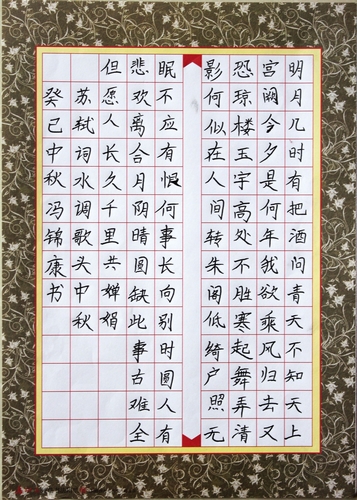 明月几时有把酒问青天不知天上
宫阙今夕是何年我欲乘风归去又
恐琼楼玉宇高处不胜寒起舞弄清
影何似在人间转朱阁低绮户照无
眠不应有恨何事长向别时圆人有
悲欢离合月阴晴圆缺此事古难全
但愿人长久千里共婵娟
苏轼词水调歌头中秋
癸己中秋冯锦康书